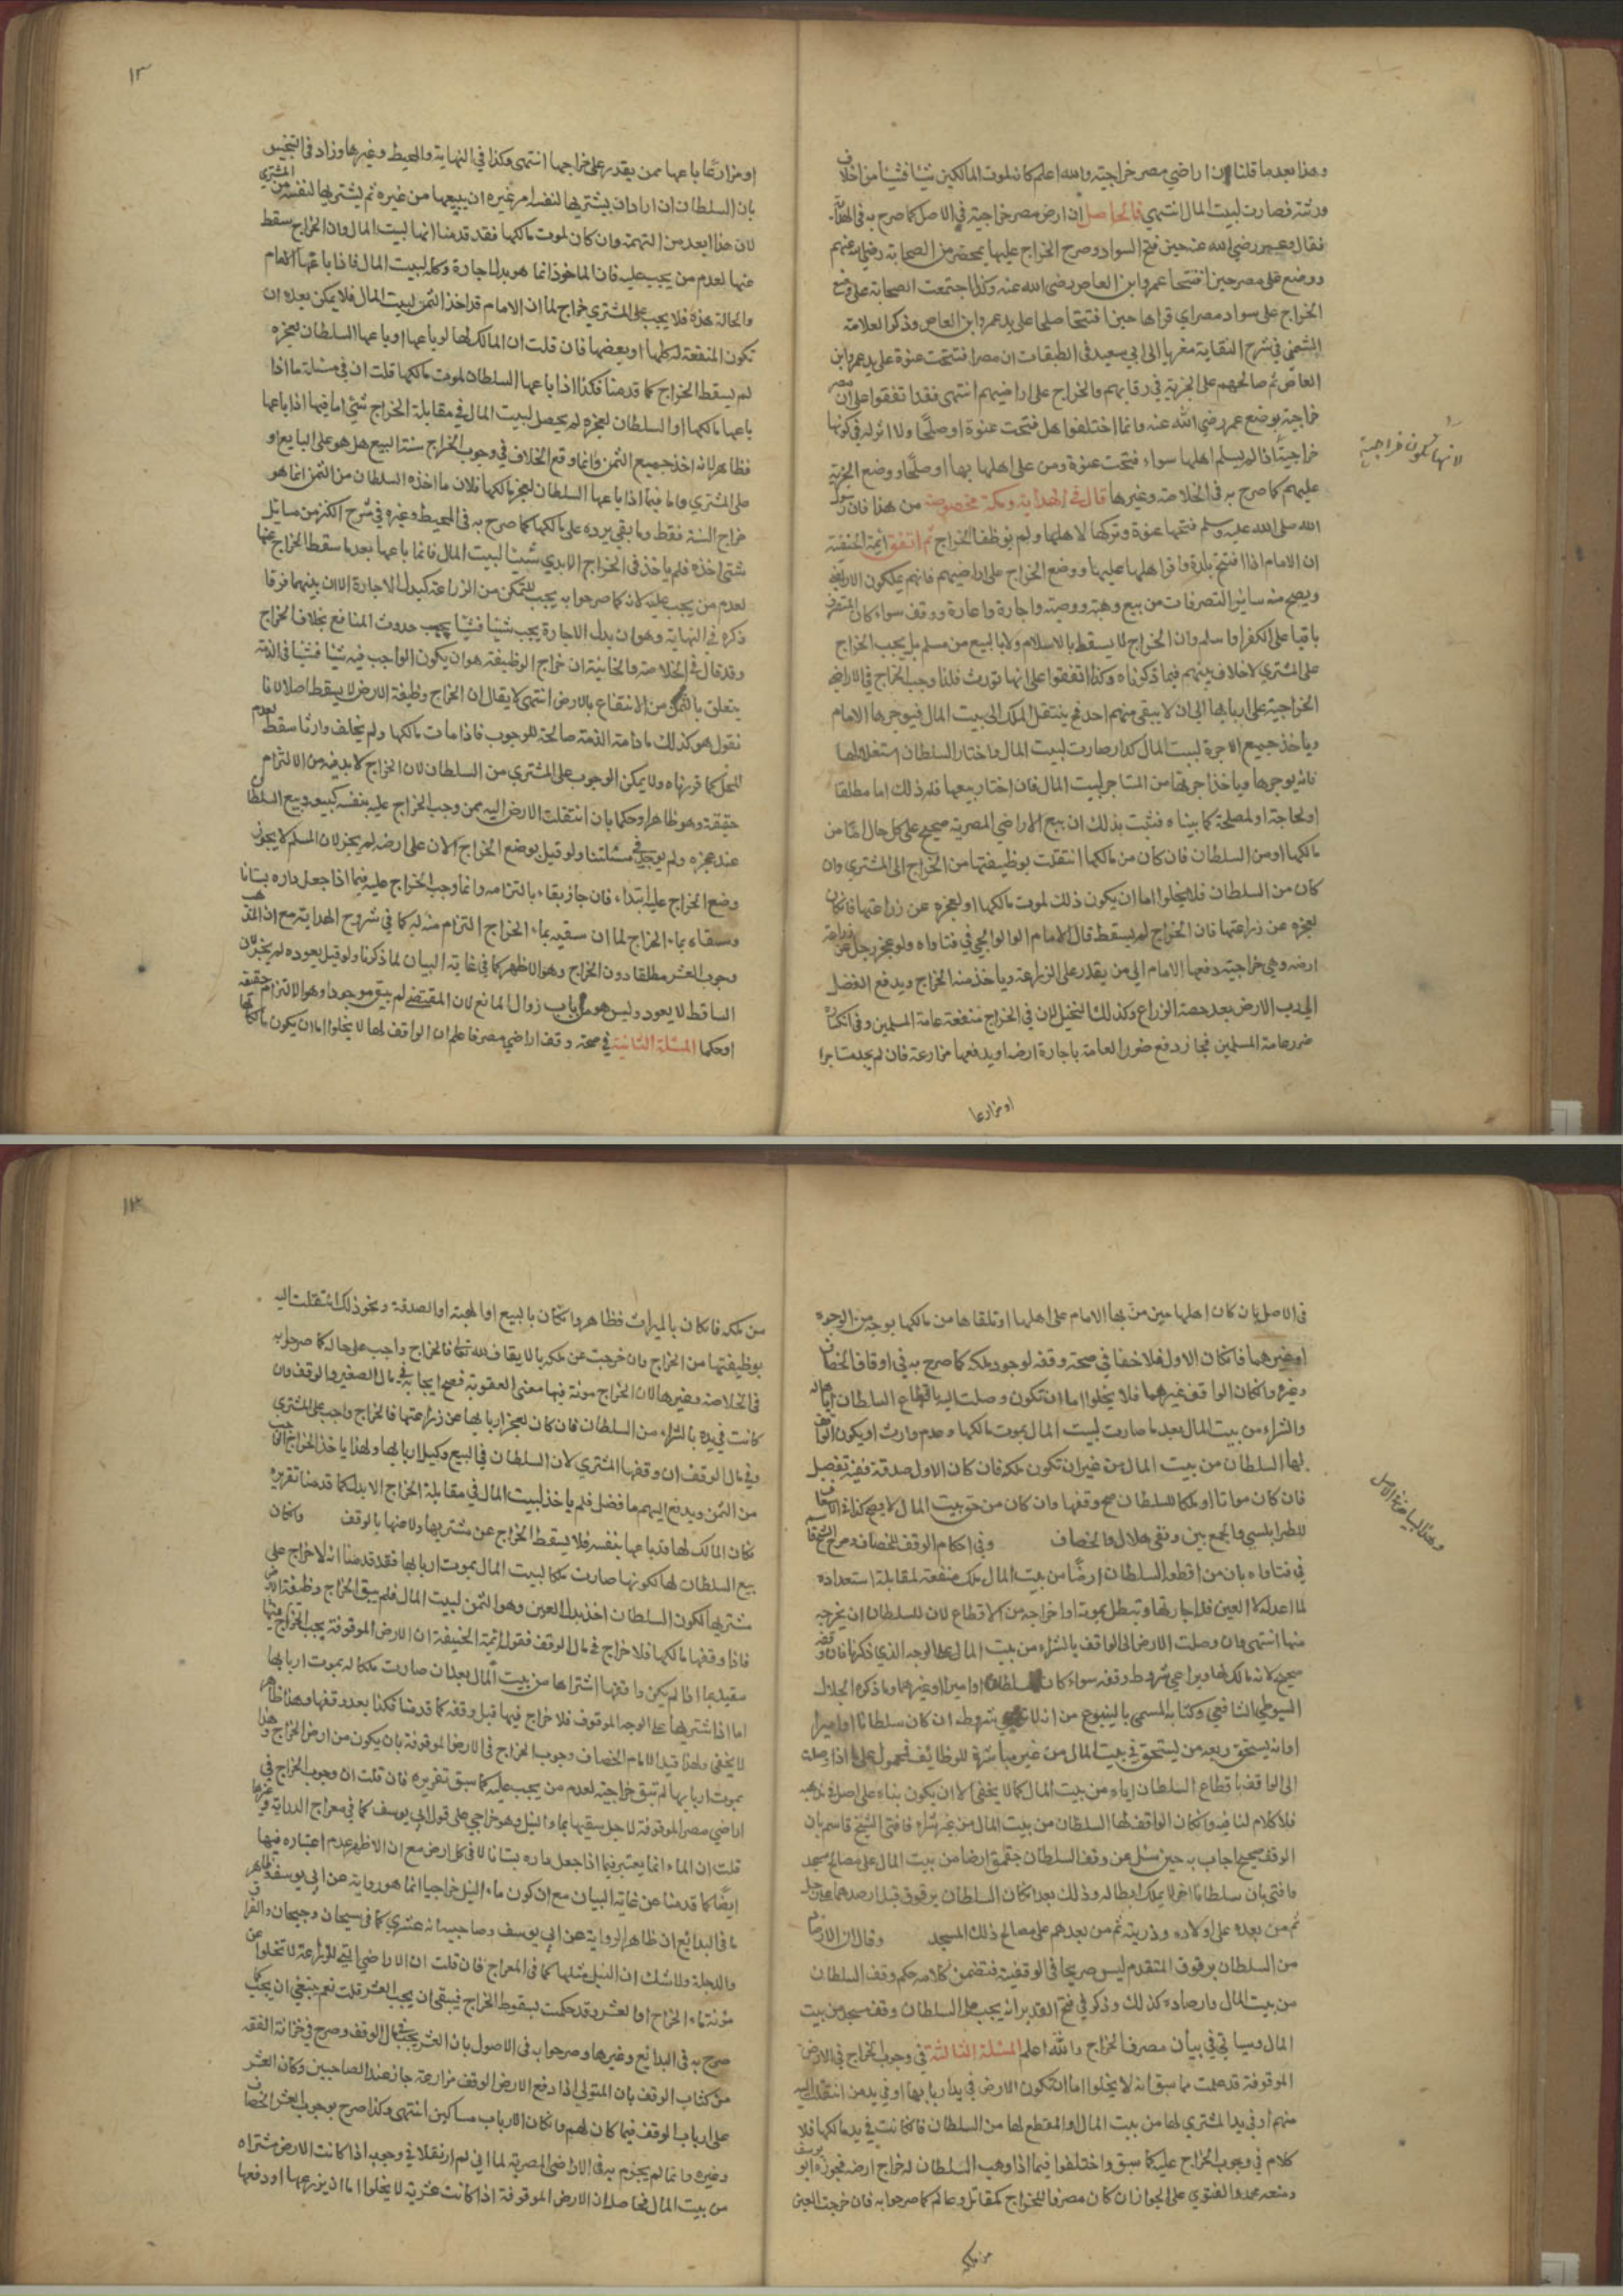 وهذا بعدما قلنا ان اراضي مصر خراجية والله اعلم كانه لموت المالكين شيئا فشيئا من اخلاف
ورثته فصارت لبيت المال انتهى فالحاصل ان ارض مصر خراجية في الاصل كما صرح به في الهداية
فقال وعمر رضي الله عنه حين فتح السواد وضع الخراج عليها بمحضر من الصحابة رضي الله عنهم
ووضع على مصر حين افتتحها عمرو ابن العاص رضي الله عنه وكذا اجتمعت الصحابة على وضع
الخراج على سواد مصر اي قراها حين افتتحها صلحا على يد عمرو ابن العاص وذكر العلامة
الشمني في شرح النقاية مغربا الى ابي سعيد في الطبقات ان مصر افتتحت عنوة على يد عمرو ابن
العاص ثم صالحهم على الجزية في رقابهم والخراج على اراضيهم انتهى فقد اتفقوا على ان مصر
خراجية بوضع عمر رضي الله عنه وانما اختلفوا هل فتحت عنوة او صلحا ولا اثر له في كونها
خراجية اذا لم يسلم اهلها سواء فتحت عنوة ومن على اهلها بها او صلحا ووضع الجزية
لانها تكون خراجية
عليهم كما صرح به في الخلاصة وغيرها قال في الهداية ومكة مخصوصة من هذا فان رسول
الله صلى الله عليه وسلم فتحها عنوة وتركها لاهلها ولم يوظف الخراج ثم اتفق ائمة الحنفية
ان الامام اذا افتتح بلدة واقر اهلها عليها ووضع الخراج على اراضيهم فانهم يملكون الاراضي
ويصح منه سائر التصرفات من بيع وهبة ووصية واجارة واعارة ووقف سواء كان المتصرف
باقيا على الكفر او اسلم وان الخراج لا يسقط بالاسلام ولا بالبيع من مسلم بل يجب الخراج
على المشتري لا خلاف بينهم فيما ذكرناه وكذا اتفقوا على انها تورث قلنا وجب الخراج في الاراضي
الخراجية على اربابها الى ان لا يبقى منهم احد فح ينتقل الملك الى بيت المال فيوجرها الامام
وياخذ جميع الاجرة لبيت المال كدار صارت لبيت المال واختار السلطان استغلالها
فانه يوجرها وياخذ اجرتها من المستاجر لبيت المال فان اختار بيعها فله ذلك اما مطلقا
او لحاجة او لمصلحة كما بيناه فثبت بذلك ان بيع الاراضي المصرية صحيح على كل حال اما من
مالكها او من السلطان فان كان من مالكها انتقلت بوظيفتها من الخراج الى المشتري وان
كان من السلطان فلا يخلو اما ان يكون ذلك لموت مالكها او لعجزه عن زراعتها فان كان
لعجزه عن زراعتها فان الخراج لم يسقط قال الامام الولوالجي في فتاواه ولو عجز رجل عن زراعة
ارضه وهي خراجية دفعها الامام الى من يقدر على الزراعة وياخذ منه الخراج ويدفع الفضل
الى رب الارض بعد حصة الزراع وكذلك النخيل لان في الخراج منفعة عامة المسلمين وفي انكساره
ضرر عامة المسلمين فجاز دفع ضرر العامة باجارة ارضه او يدفعها مزارعة فان لم يجد مستاجرا
او مزارعا
١٣
او مزارعا باعها ممن يقدر على خراجها انتهى وكذا في النهاية والمحيط وغيرها وزاد في التجنيس
بان السلطان ان اراد ان يشتريها لنفسه امر غيره ان يبيعها من غيره ثم يشتريها لنفسه من المشتري
لان هذا ابعد من التهمة وان كان لموت مالكها فقد قدمنا انها لبيت المال وان الخراج سقط
عنها لعدم من يجب عليه فان الماخوذ انما هو بدل اجارة وكله لبيت المال فاذا باعها الامام
والحالة هذه فلا يجب على المشتري خراج لما ان الامام قد اخذ الثمن لبيت المال فلا يمكن بعده ان
تكون المنفعة له كلها او بعضها فان قلت ان المالك لها لو باعها او باعها السلطان لعجزه
لم يسقط الخراج كما قدمنا فكذا اذا باعها السلطان لموت مالكها قلت ان في مسئلة ما اذا
باعها مالكها او السلطان لعجزه لم يحصل لبيت المال في مقابلة الخراج شيء اما فيما اذا باعها
فظاهر لانه اخذ جميع الثمن وانما وقع الخلاف في وجوب الخراج سنة البيع هل هو على البايع او
على المشتري واما فيما اذا باعها السلطان لعجز مالكها فلان ما اخذه السلطان من الثمن انما هو
خراج السنة فقط وما بقي يرده على مالكها كما صرح به في المحيط وغيره في شرح الكنز من مسايل
شتى اخذه فلم ياخذ في الخراج الابدي شيئا لبيت المال فانما باعها بعدما سقط الخراج عنها
لعدم من يجب عليه لانه كما صرحوا به يجب للتمكن من الزراعة كبدل الاجارة الا ان بينهما فرقا
ذكره في النهاية وهو ان بدل الاجارة يجب شيئا فشيئا بحسب حدوث المنافع بخلاف الخراج
وقد قال في الخلاصة والخانية ان خراج الوظيفة هو ان يكون الواجب فيه شيئا في الذمة
يتعلق بالتمكن من الانتفاع بالارض انتهى لا يقال ان الخراج وظيفة الارض لا يسقط اصلا لانا
نقول هو كذلك ما دامت الذمة صالحة للوجوب فاذا مات مالكها ولم يخلف وارثا سقط لعدم
المحل كما قررناه ولا يمكن الوجوب على المشتري من السلطان لان الخراج لا بد فيه من الالتزام
حقيقة وهو ظاهر او حكما بان انتقلت الارض اليه ممن وجب الخراج عليه بنفسه كبيعه وبيع السلطان
عند عجزه ولم يوجد في مسئلتنا ولو قيل بوضع الخراج الان على ارضه لم يجز لان المسلم لا يجوز
وضع الخراج عليه ابتداء فان جاز بقاء بالتزامه وانما وجب الخراج عليه فيما اذا جعل داره بستانا
وسقاه بماء الخراج لما ان سقيه بماء الخراج التزام منه له كما في شروح الهداية مع ان المذهب
وجوب العشر مطلقا دون الخراج وهو الاظهر كما في غاية البيان لما ذكرنا ولو قيل بعوده لم يجز لان
الساقط لا يعود وليس هو من باب زوال المانع لان المقتضي لم يبق موجودا وهو الالتزام حقيقة
او حكما المسئلة الثانية في صحة وقف اراضي مصر فاعلم ان الواقف لها لا يخلو اما ان يكون مالكا لها
في الاصل بان كان اهلها حين من بها الامام على اهلها او تلقاها من مالكها بوجه من الوجوه
او غيرهما فان كان الاول فلا خفا في صحة وقفه لوجود ملكه كما صرح به في اوقاف الخصاف
وغيره وان كان الواقف غيرهما فلا يخلو اما ان تكون وصلت اليه باقطاع السلطان اياها له
والشراء من بيت المال بعد ما صارت لبيت المال بموت مالكها وعدم وارث او يكون الواقف
لها السلطان من بيت المال من غير ان تكون ملكه فان كان الاول صدقة ففيه تفصيل
فان كان مواتا او ملكا للسلطان صح وقفها وان كان من حق بيت المال لا يصح كذا في الاسعاف
للطرابلسي والجمع بين وقفي هلال والخصاف وفي احكام الوقف للخصاف وصرح الشيخ قاسم
في فتاواه بان من اقطعه السلطان ارضا من بيت المال ملك منفعة لمقابلة استعداده
لما اعد له لا العين فله اجارتها وتبطل بموته او اخراجه من الاقطاع لان للسلطان ان يخرجه
منها انتهى وان وصلت الارض الى الواقف بالشراء من بيت المال على الوجه الذي ذكرناه فان وقفه
صحيح لانه مالك لها ويراعي شروط وقفه سواء كان سلطانا او اميرا او غيرهما وما ذكره الجلال
السيوطي الشافعي في كتابه المسمى بالينبوع من انه لا شروطه ان كان سلطانا او اميرا
او انه يستحق ريعه من يستحق في بيت المال من غير مباشرة للوظائف فمحمول على اذا وصلت
الى الواقف باقطاع السلطان اياه من بيت المال كما لا يخفى الا ان يكون بناء على اصل مذهبه
فلا كلام لنا فيه وان كان الواقف لها السلطان من بيت المال من غير شراء فافتى الشيخ قاسم بان
الوقف صحيح اجاب به حين سئل عن وقف السلطان جقمق ارضا من بيت المال على مصالح مسجد
وافتى بان سلطانا اخر لا يملك ابطاله وذلك بعد ان كان السلطان برقوق قبل ارصدها على رجل
ثم من بعده على اولاده وذريته ثم من بعدهم على مصالح ذلك المسجد وقال ان الارصاد
من السلطان برقوق المتقدم ليس صريحا في الوقفية فتضمن كلامه حكم وقف السلطان
من بيت المال وارصاده كذلك وذكر في فتح القدير انه يجب على السلطان وقف مسجد من بيت
المال وسياتي في بيان مصرف الخراج والله اعلم المسئلة الثالثة في وجوب الخراج في الارض
الموقوفة قد علمت مما سبق انه لا يخلو اما ان تكون الارض في يد اربابها او في يد من انتقلت اليه
منهم او في يد المشتري لها من بيت المال او المقطع لها من السلطان فان كانت في يد مالكها فلا
كلام في وجوب الخراج عليه كما سبق واختلفوا فيما اذا وهب السلطان له خراج ارضه فجوزه ابو يوسف
ومنعه محمد والفتوى على الجواز ان كان مصرفا للخراج كمقاتل وعالم كما صرحوا به فان خرجت العين
من ملكه
من ملكه فان كان بالميراث فظاهر وان كان بالبيع او الهبة او الصدقة ونحو ذلك انتقلت اليه
بوظيفتها من الخراج وان خرجت عن ملكه بالايقاف لله تعالى فالخراج واجب على حاله كما صرحوا به
في الخلاصة وغيرها لان الخراج مونة فيها معنى العقوبة فصح ايجابه في مال الصغير والوقف وان
كانت في يده بالشراء من السلطان فان كان لعجز اربابها عن زراعتها فالخراج واجب على المشتري
وفي مال الوقف ان وقفها المشتري لان السلطان في البيع وكيل اربابها ولهذا ياخذ الخراج
من الثمن ويدفع اليهم ما فضل فلم ياخذ لبيت المال في مقابلة الخراج الا بدله كما قدمنا تقريره
فكان المالك لها قد باعها بنفسه فلا يسقط الخراج عن مشتريها ولا عنها بالوقف وان كان
بيع السلطان لها لكونها صارت ملكا لبيت المال بموت اربابها فقد قدمنا انه لا خراج على
مشتريها لكون السلطان اخذ بدل العين وهو الثمن لبيت المال فلم يبق الخراج وظيفة الارض
فاذا وقفها مالكها فلا خراج في مال الوقف فقول ائمة الحنفية ان الارض الموقوفة يجب الخراج فيها
مقيد بما اذا لم يكن واقفها اشتراها من بيت المال بعد ان صارت ملكا له بموت اربابها
اما اذا اشتريها على الوجه الموقوف فلا خراج فيها قبل وقفه كما قدمنا فكذا بعد وقفها وهذا ظاهر
لا يخفى ولهذا قيد الامام الخصاف وجوب الخراج في الارض الموقوفة بان يكون من ارض الخراج وهذا
بموت اربابها لم تبق خراجية لعدم من يجب عليه كما سبق تقريره فان قلت ان وجوب الخراج في
اراضي مصر الموقوفة لاجل سقيها بماء النيل وهو خراجي على قول ابي يوسف كما في معراج الدراية وغيرها
قلت ان الماء انما يعتبر فيما اذا جعل داره بستانا لا في كل ارض مع ان الاظهر عدم اعتباره فيها
ايضا كما قدمنا عن غاية البيان مع ان كون ماء النيل خراجيا انما هو رواية عن ابي يوسف فظاهر
ما في البدائع ان ظاهر الرواية عن ابي يوسف وصاحبيه انه عشري كما في سيحان وجيحان والفرات
والدجلة ولا شك ان النيل مثلها كما في المعراج فان قلت ان الاراضي التي للزراعة لا تخلو عن
مؤنة اما الخراج او العشر وقد حكمت بسقوط الخراج فبقي ان يجب العشر قلت نعم ينبغي ان يجب كما
صرح به في البدائع وغيرها وصرحوا به في الاصول بان العشر يجب في مال الوقف وصرح في خزانة الفقه
من كتاب الوقف بان المتولي اذا دفع الارض الوقف مزارعة جاز عند الصاحبين وكان العشر
على ارباب الوقف فيما كان لهم وان كان الارباب مساكين انتهى وكذا صرح بوجوب العشر الخصاف
وغيره وانما لم يجزم به في الاراضي المصرية لما اني لم ار نقلا في وجوبه اذا كانت الارض مشتراه
من بيت المال فحاصله ان الارض الموقوفة اذا كانت عشرية لا يخلو اما ان يزرعها او دفعها